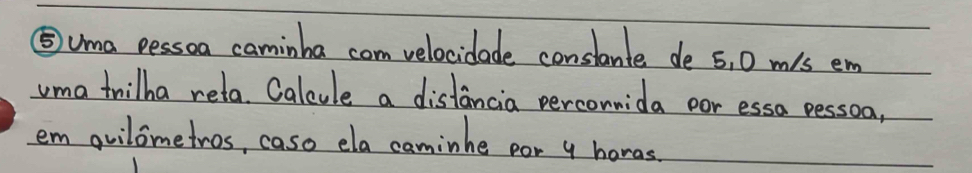 ⑤ Uma pessoa caminha com velocidade constante de 5,0 m/s em
uma trilha reta. Calcule a distância percorrida por essa pessoa,
em quilômetros, caso ela caminhe por 4 horas.